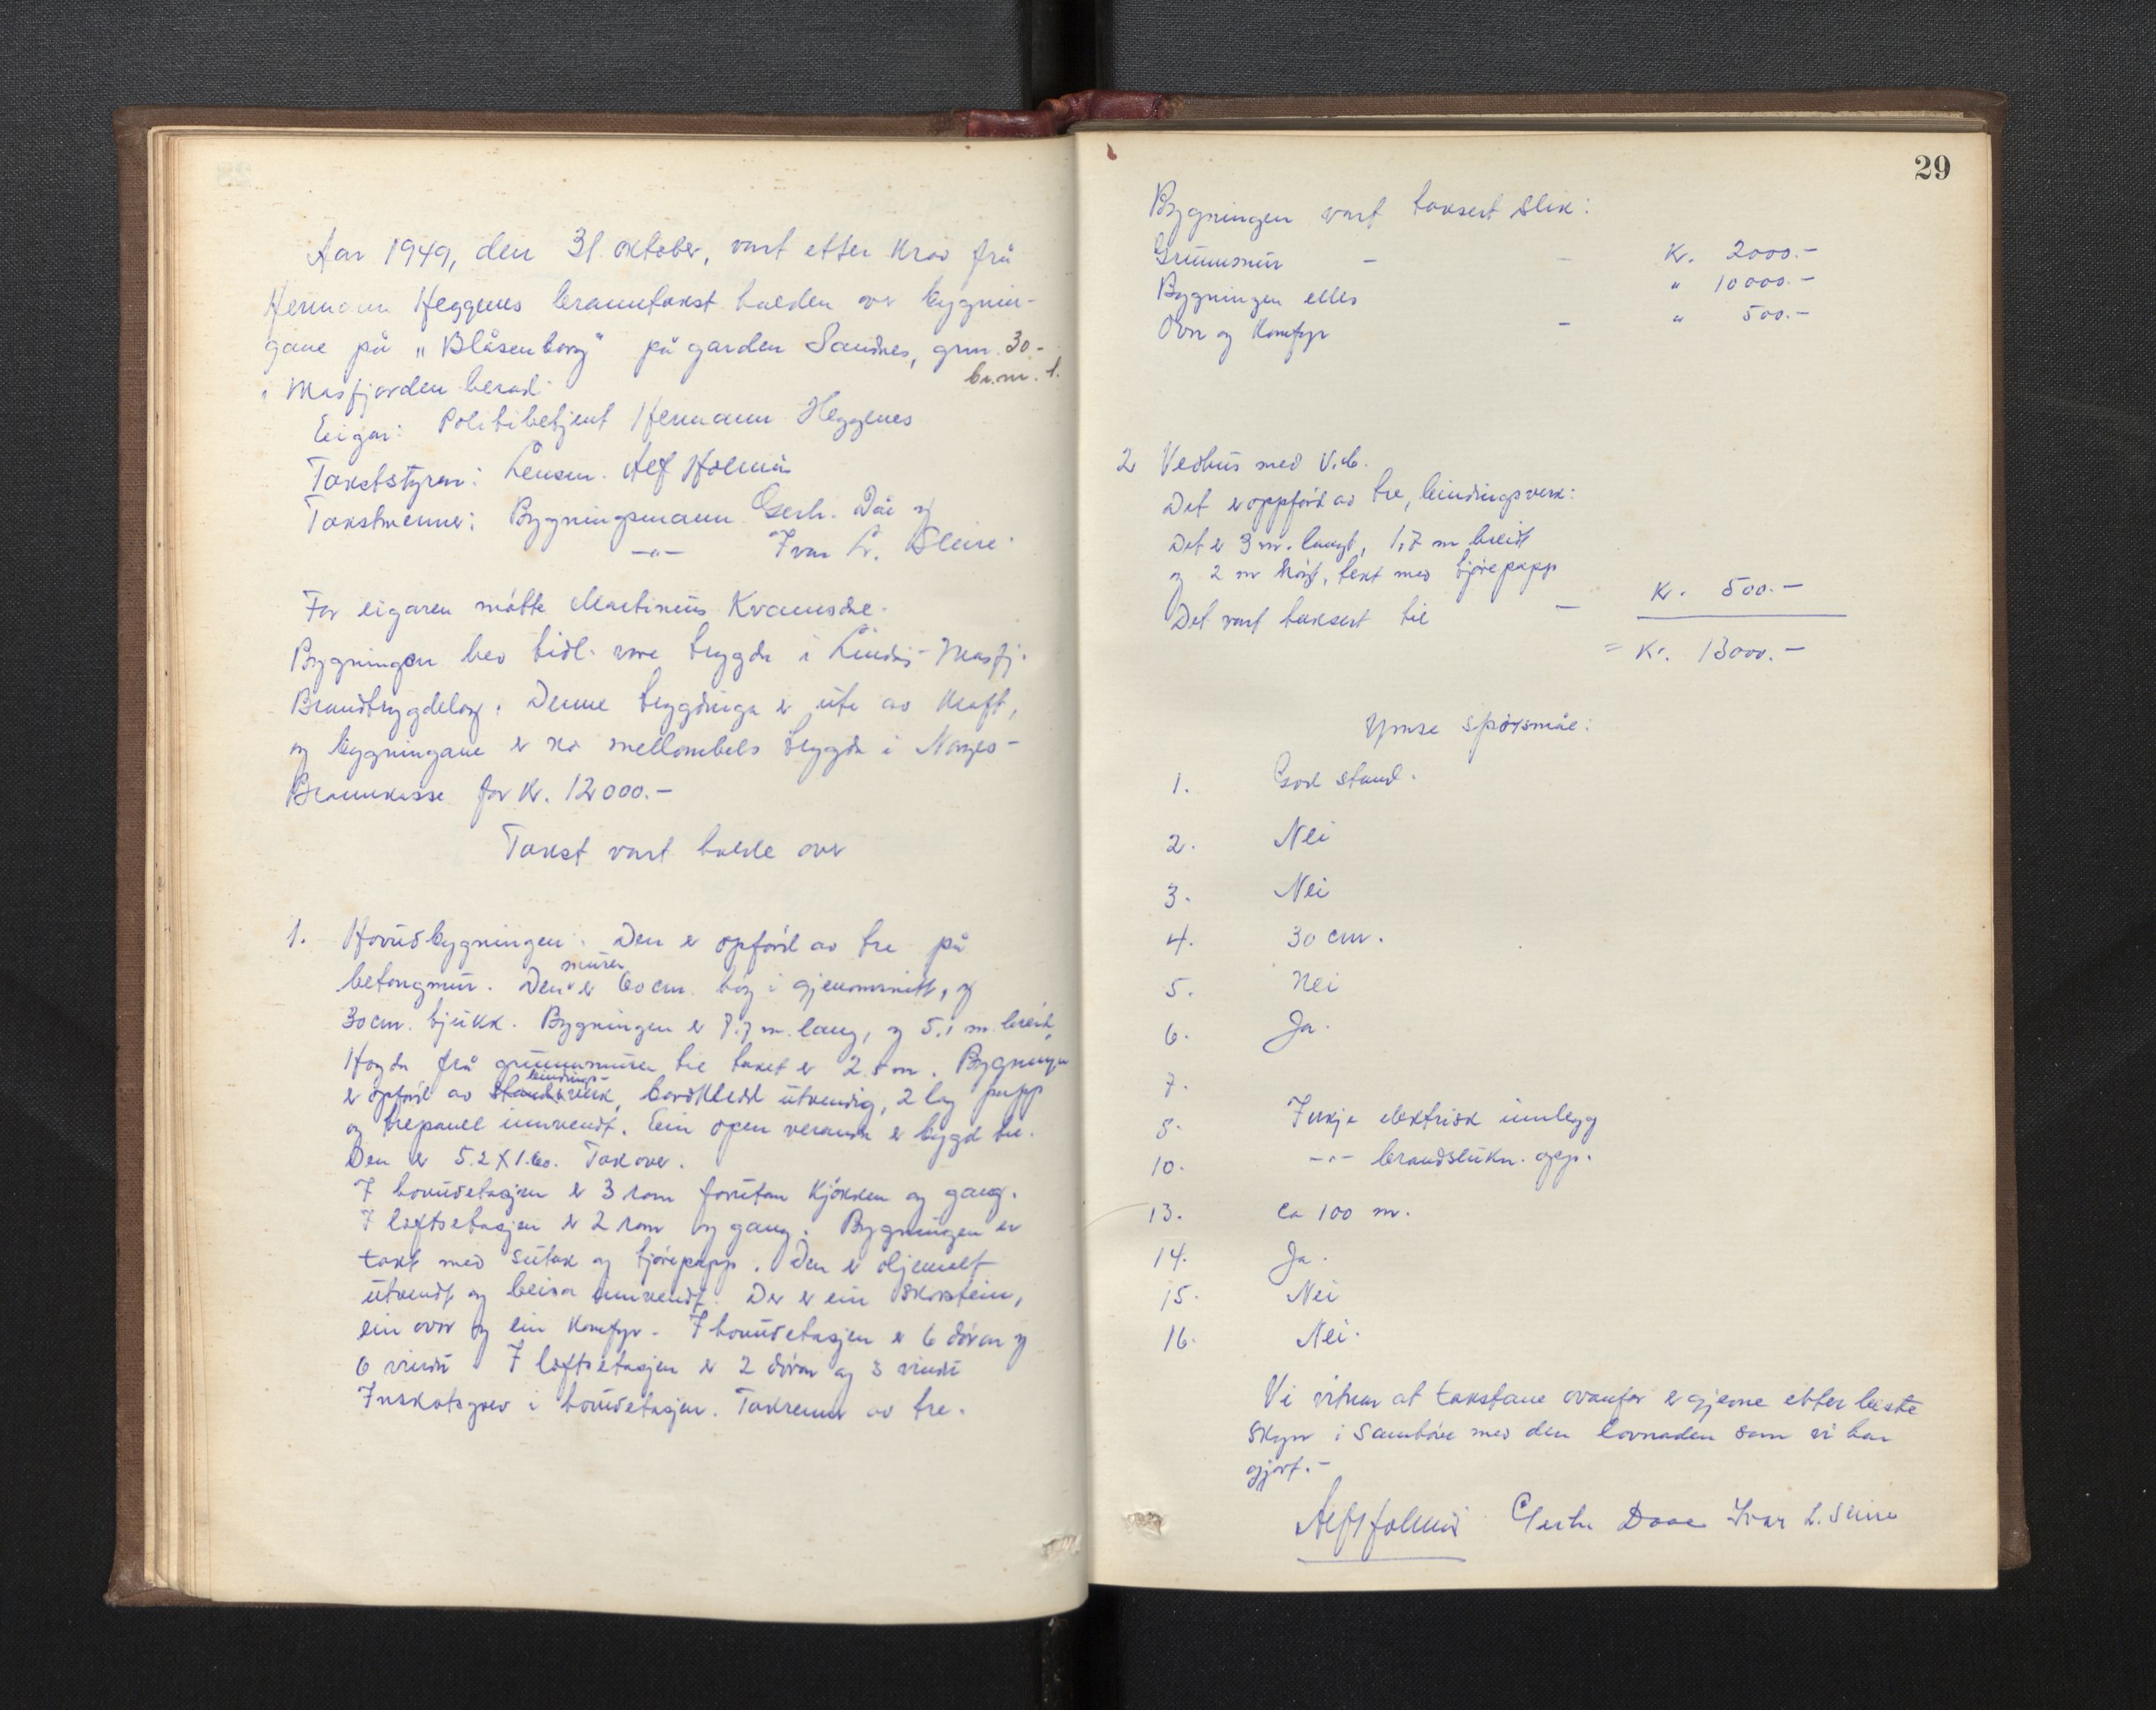 Aar 1949, den 31. oktober, vart etter krav frå
Hermann Heggenes branntakst halden over bygnin-
gane på "Blåsenborg" på garden Sandnes, grnr. 30-
br.nr. 1.
i Masfjorden herad.
Eigar: Politibetjent Hermann Heggenes
Takststyrar: Lensm. Alf Holmås
Takstmenner: Bygningsmann Gerh. Dåe og
-"- Ivar L. Sleire.
For eigaren møtte Martinius Kvamsdal.
Bygningen hev tidl. vore trygda i Lindås-Masfj.
Brandtrygdelag. Denne trygdinga er ute av kraft,
og bygningane er no mellombels trygda i Norges-
Brannkasse for kr. 12000.-
Takst vart halde over
1. Hovudbygningen. Den er opførd av tre på
muren
betongmur. Den er 60 cm. høg i gjenomsnitt, og
30 cm. tjukk. Bygningen er 7.7 m. lang, og 5.1 m. breid,
Høgda frå grunnmuren til taket er 2.5 m. Bygningen
bindings-
er opførd av standarverk, bordkledd utvendig, 2 lag papp
og trepanel innvendt. Ein open veranda er bygd til.
Den er 5.2 X 1.60. Tak over.
I hovudetasjen er 3 rom forutan kjøkken og gang.
I loftsetasjen er 2 rom og gang. Bygningen er
takt med sutak og tjørepapp. Den er oljemalt
utvendt og beisa innvendt. Der er ein skorstein,
ein ovn og ein komfyr. I hovudetasjen er 6 dører og
6 vindu. I loftsetasjen er 2 dører og 3 vindu
Innskotsgolv i hovudetasjen. Takrenner av tre.
29
Bygningen vart taksert slik:
Grunnmur - - Kr. 2000.-
Bygningen elles " 10000.-
Ovn og komfyr - " 500.-
2 Vedhus med V.C.
Det er oppførd av tre, bindingsverk:
Det er 3 m. langt, 1,7 m breidt
og 2 m høgt, tekt med tjørepapp
Det vart taksert til - Kr. 500.-
= Kr. 13000.-
Ymse spørsmål:
1. God stand.
2. Nei
3. Nei
4. 30 cm.
5. Nei
6. Ja.
7.
8. Inkje elektrisk innlegg
10. -"- brandsløkn. app.
13. ca 100 m.
14. Ja.
15. Nei
16. Nei.
Vi vitnar at takstane ovanfor er gjerne etter beste
skyn i samhøve med den lovnaden som vi har
gjort.-
Alf Holmås Gerh. Daae Ivar L. Sleire